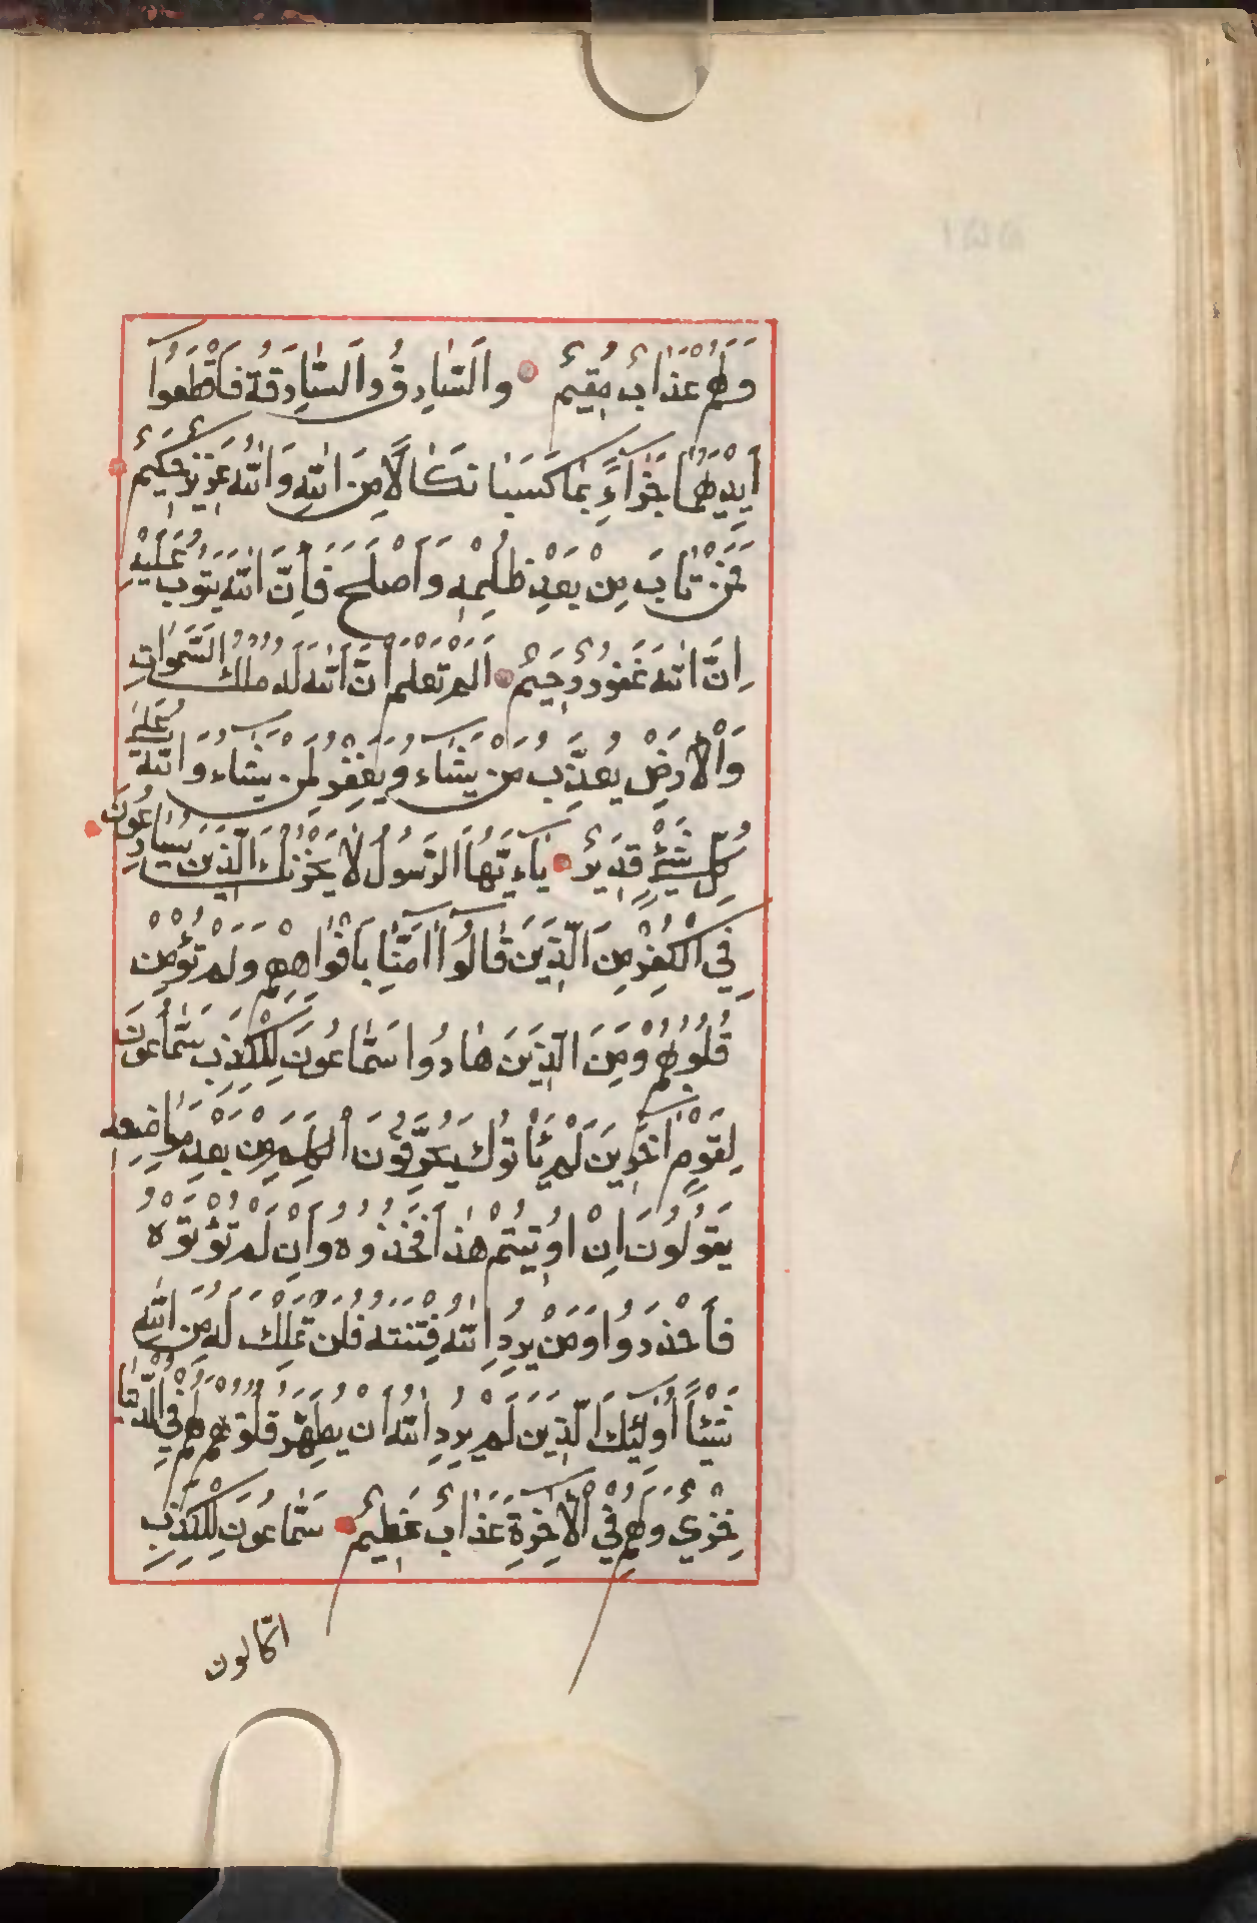 وَلَهُمْ عَذَابٌ مُقِيمٌ وَالسَّارِقُ وَالسَّارِقَةُ فَاقْطَعُوا
اَيْدِيَهُمَا جَزَاءً بِمَا كَسَبَا نَكَالًا مِنَ اللّٰهِ وَاللّٰهُ عَزِيزٌ حَكِيمٌ
فَمَنْ تَابَ مِنْ بَعْدِ ظُلْمِهِ وَاَصْلَحَ فَاِنَّ اللّٰهَ يَتُوبُ عَلَيْهِ
اِنَّ اللّٰهَ غَفُورٌ رَحِيمٌ اَلَمْ تَعْلَمْ اَنَّ اللّٰهَ لَهُ مُلْكُ السَّمٰوَاتِ
وَالْاَرْضِ يُعَذِّبُ مَنْ يَشَاءُ وَيَغْفِرُ لِمَنْ يَشَاءُ وَاللّٰهُ عَلٰى
كُلِّ شَيْءٍ قَدِيرٌ يَاءَيُّهَا الرَّسُولُ لَا يَحْزُنْكَ الَّذِينَ يُسَارِعُونَ
فِي الْكُفْرِ مِنَ الَّذِينَ قَالُوا اٰمَنَّا بِاَفْوَاهِهِمْ وَلَمْ تُؤْمِنْ
قُلُوبُهُمْ وَمِنَ الَّذِينَ هَادُوا سَمَّاعُونَ لِلْكَذِبِ سَمَّاعُونَ
لِقَوْمٍ اٰخَرِينَ لَمْ يَأْتُوكَ يُحَرِّفُونَ الْكَلِمَ مِنْ بَعْدِ مَوَاضِعِهِ
يَقُولُونَ اِنْ اُوتِيتُمْ هٰذَا فَخُذُوهُ وَاِنْ لَمْ تُؤْتَوْهُ
فَاحْذَرُوا وَمَنْ يُرِدِ اللّٰهُ فِتْنَتَهُ فَلَنْ تَمْلِكَ لَهُ مِنَ اللّٰهِ
شَيْئًا اُولٰئِكَ الَّذِينَ لَمْ يُرِدِ اللّٰهُ اَنْ يُطَهِّرَ قُلُوبَهُمْ لَهُمْ فِي الدُّنْيَا
خِزْيٌ وَلَهُمْ فِي الْاٰخِرَةِ عَذَابٌ عَظِيمٌ سَمَّاعُونَ لِلْكَذِبِ
اكّالون